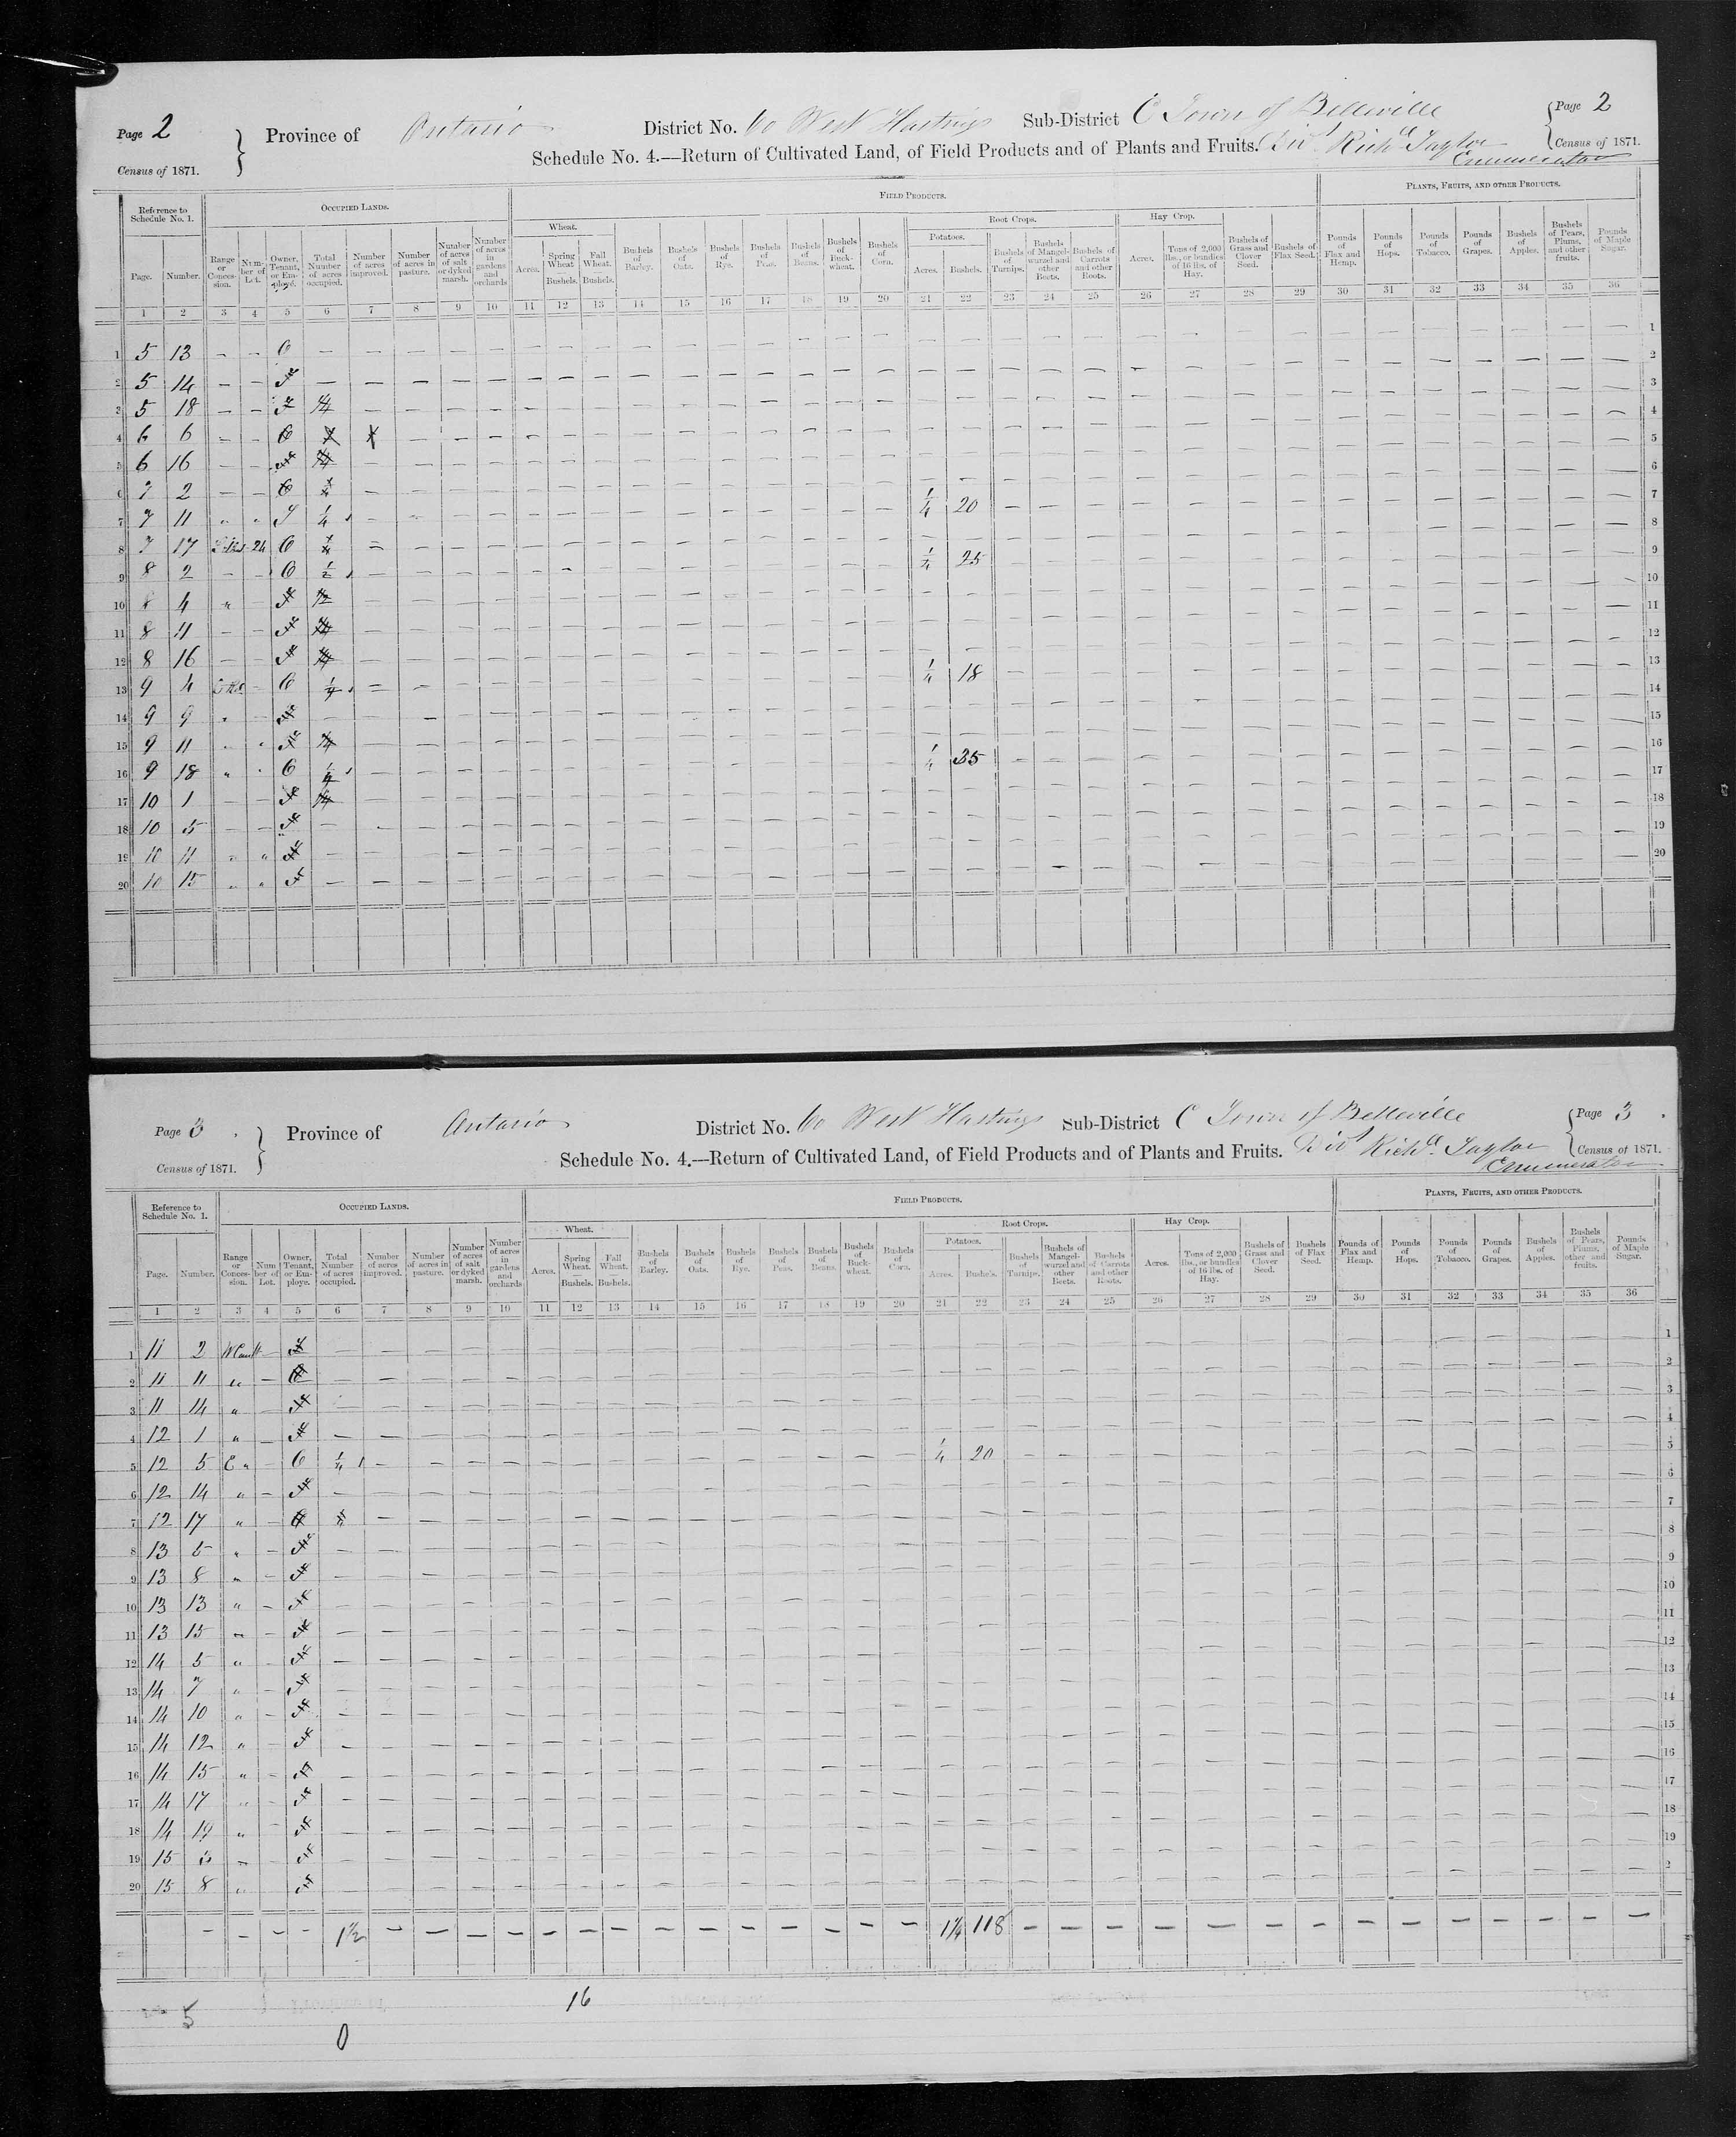 Page 2
Province of Ontario
District No. 60 West Hastings Sub-District C Town of Belleville
Page 2
Census of 1871.
Schedule No. 4.—Return of Cultivated Land, of Field Products and of Plants and Fruits. Richd Taylor
Enumerator
Census of 1871.
Reference to Schedule No. 1.
OCCUPIED LANDS.
FIELD PRODUCTS.
PLANTS, FRUITS, AND OTHER PRODUCTS.
Wheat.
Root Crops.
Potatoes.
Hay Crop.
Page. Number. Range or Conces-sion. Num-ber of Lot. Owner, Tenant, or Em-ployé. Total Number of acres occupied. Number of acres improved. Number of acres in pasture. Number of acres of salt or dyked marsh. Number of acres in gardens and orchards Acres. Spring Wheat Bushels. Fall Wheat. Bushels. Bushels of Barley. Bushels of Oats. Bushels of Rye. Bushels of Peas. Bushels of Beans. Bushels of Buck-wheat. Bushels of Corn. Acres. Bushels. Bushels of Turnips. Bushels of Mangel-wurzel and other Beets. Bushels of Carrots and other Roots. Acres. Tons of 2,000 lbs., or bundles of 16 lbs. of Hay. Bushels of Grass and Clover Seed. Bushels of Flax Seed. Pounds of Flax and Hemp. Pounds of Hops. Pounds of Tobacco. Pounds of Grapes. Bushels of Apples. Bushels of Pears, Plums, and other fruits. Pounds of Maple Sugar.
1 2 3 4 5 6 7 8 9 10 11 12 13 14 15 16 17 18 19 20 21 22 23 24 25 26 27 28 29 30 31 32 33 34 35 36
1 5 13 — — O — 1
2 5 14 — — — 2
3 5 18 — — 1/4 — 3
4 6 6 — — — 4
5 6 16 — — 1/4 — 5
6 7 2 — — O — 6
7 7 11 " " T 1/4 — 1/4 20 — 7
8 7 17 24 O — 8
9 8 2 — — O 1/2 — 1/4 25 — 9
10 8 4 " — 1/2 — 10
11 8 11 — — 1/4 — 11
12 8 16 — — 1/4 — 12
13 9 4 — O 1/4 — 1/4 18 — 13
14 9 9 " — — 14
15 9 11 " " 1/4 — 15
16 9 18 " " O 1/4 — 1/4 35 — 16
17 10 1 — — 1/4 — 17
18 10 5 — — — 18
19 10 11 " " — 19
20 10 15 " " — 20
Page 3
Province of Ontario
District No. 60 West Hastings Sub-District C Town of Belleville
Page 3
Census of 1871.
Schedule No. 4.—Return of Cultivated Land, of Field Products and of Plants and Fruits. Richd. Taylor
Enumerator
Census of 1871.
Reference to Schedule No. 1.
OCCUPIED LANDS.
FIELD PRODUCTS.
PLANTS, FRUITS, AND OTHER PRODUCTS.
Wheat.
Root Crops.
Potatoes.
Hay Crop.
Page. Number. Range or Conces-sion. Num ber of Lot. Owner, Tenant, or Em-ploye. Total Number of acres occupied. Number of acres improved. Number of acres in pasture. Number of acres of salt or dyked marsh. Number of acres in gardens and orchards Acres. Spring Wheat. Bushels. Fall Wheat. Bushels. Bushels of Barley. Bushels of Oats. Bushels of Rye. Bushels of Peas. Bushels of Beans. Bushels of Buck-wheat. Bushels of Corn. Acres. Bushels. Bushels of Turnips. Bushels of Mangel-wurzel and other Beets. Bushels of Carrots and other Roots. Acres. Tons of 2,000 lbs., or bundles of 16 lbs. of Hay. Bushels of Grass and Clover Seed. Bushels of Flax Seed. Pounds of Flax and Hemp. Pounds of Hops. Pounds of Tobacco. Pounds of Grapes. Bushels of Apples. Bushels of Pears, Plums, other and fruits. Pounds of Maple Sugar.
1 2 3 4 5 6 7 8 9 10 11 12 13 14 15 16 17 18 19 20 21 22 23 24 25 26 27 28 29 30 31 32 33 34 35 36
1 11 2 — — 1
2 11 11 " — — 2
3 11 14 " — — 3
4 12 1 " — — 4
5 12 5 E " — O 1/4 — 1/4 20 — 5
6 12 14 " — — 6
7 12 17 " — — 7
8 13 " — — 8
9 13 8 " — — 9
10 13 13 " — — 10
11 13 15 " — — 11
12 14 5 " — — 12
13 14 7 " — — 13
14 14 10 " — — 14
15 14 12 " — — 15
16 14 15 " — — 16
17 14 17 " — — 17
18 14 19 " — — 18
19 15 " — — 19
20 15 8 " — 2
— — — — 1 1/2 — 1 1/4 118 —
5
0
16